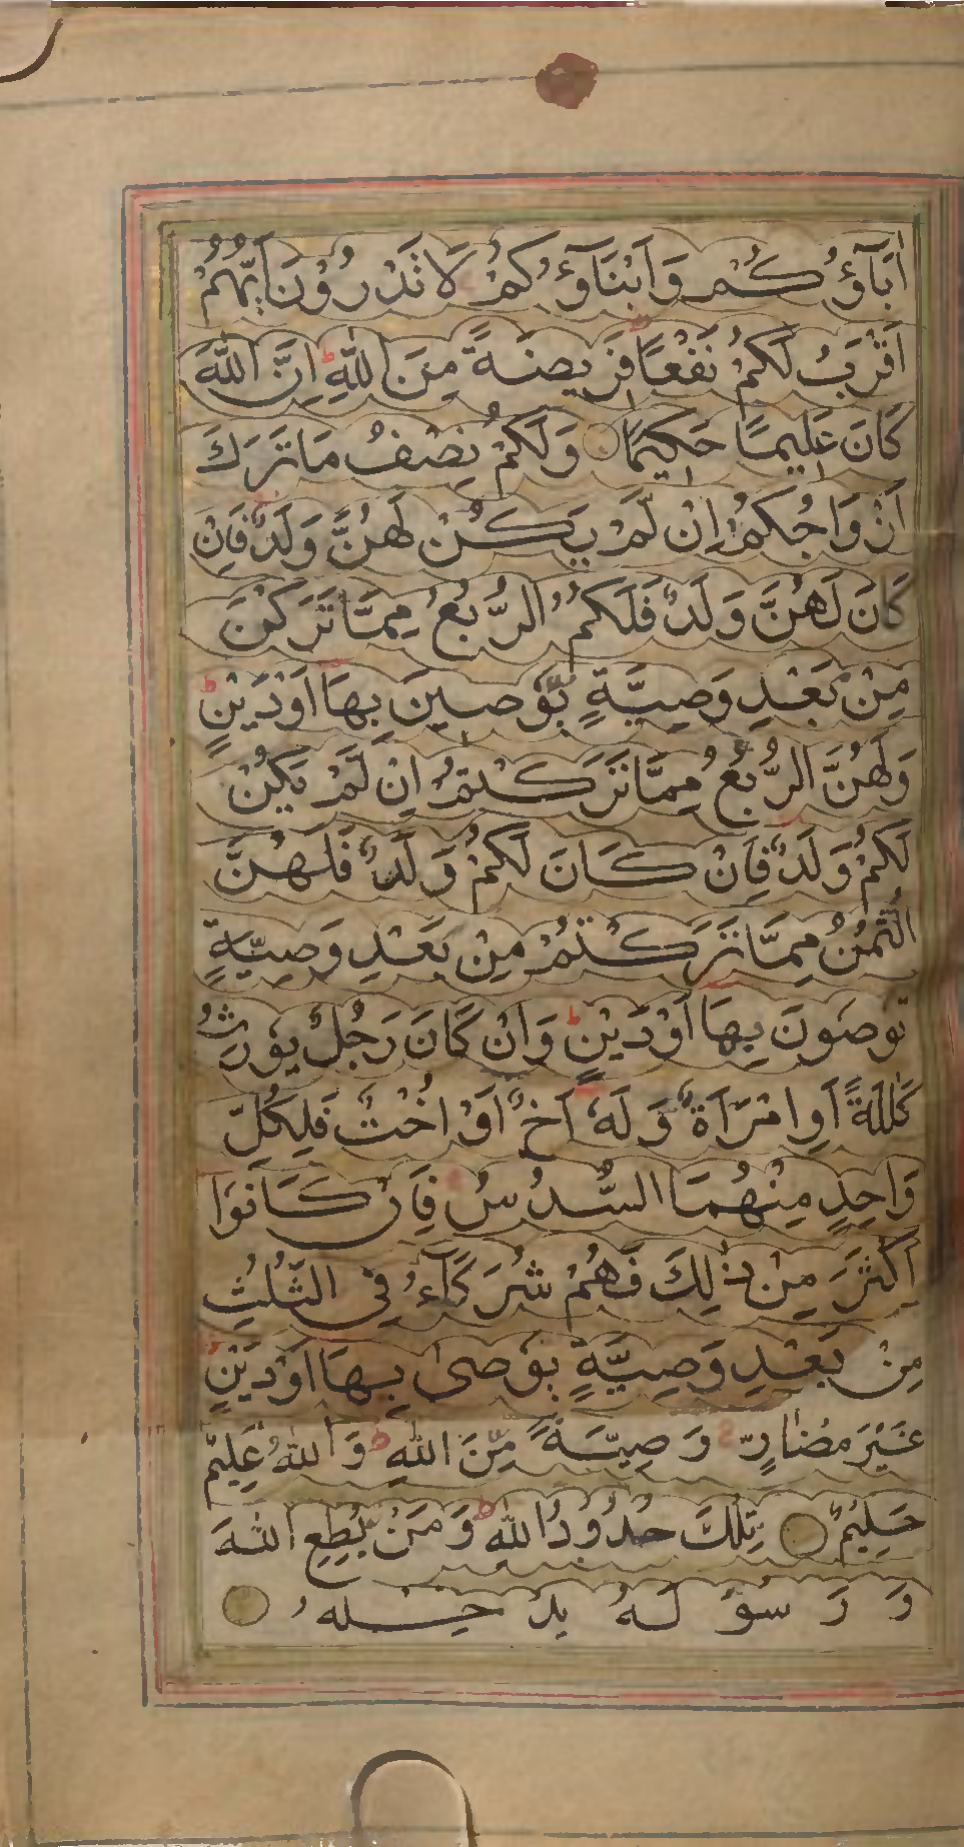 اٰبَآؤُكُمْ وَاَبْنَآؤُكُمْ لَا تَدْرُوْنَ اَيُّهُمْ
اَقْرَبُ لَكُمْ نَفْعًا فَرِيضَةً مِّنَ اللّٰهِ ط اِنَّ اللّٰهَ
كَانَ عَلِيمًا حَكِيمًا وَلَكُمْ نِصْفُ مَا تَرَكَ
اَزْوَاجُكُمْ اِنْ لَّمْ يَكُنْ لَهُنَّ وَلَدٌ فَاِنْ
كَانَ لَهُنَّ وَلَدٌ فَلَكُمُ الرُّبُعُ مِمَّا تَرَكْنَ
مِنْ بَعْدِ وَصِيَّةٍ يُّوْصِينَ بِهَا اَوْ دَيْنٍ ط
وَلَهُنَّ الرُّبُعُ مِمَّا تَرَكْتُمْ اِنْ لَّمْ يَكُنْ
لَكُمْ وَلَدٌ فَاِنْ كَانَ لَكُمْ وَلَدٌ فَلَهُنَّ
الثُّمُنُ مِمَّا تَرَكْتُمْ مِنْ بَعْدِ وَصِيَّةٍ
تُوصُونَ بِهَا اَوْ دَيْنٍ ط وَاِنْ كَانَ رَجُلٌ يُوْرَثُ
كَلٰلَةً اَوِ امْرَاَةٌ وَّلَهٗ اَخٌ اَوْ اُخْتٌ فَلِكُلِّ
وَاحِدٍ مِنْهُمَا السُّدُسُ فَاِنْ كَانُوْا
اَكْثَرَ مِنْ ذٰلِكَ فَهُمْ شُرَكَآءُ فِي الثُّلُثِ
مِنْ بَعْدِ وَصِيَّةٍ يُوْصٰى بِهَا اَوْ دَيْنٍ
غَيْرَ مُضَارٍّ وَصِيَّةً مِّنَ اللّٰهِ ط وَاللّٰهُ عَلِيمٌ
حَلِيْمٌ تِلْكَ حُدُوْدُ اللّٰهِ ط وَمَنْ يُّطِعِ اللّٰهَ
وَرَسُوْلَهٗ يُدْخِلْهُ